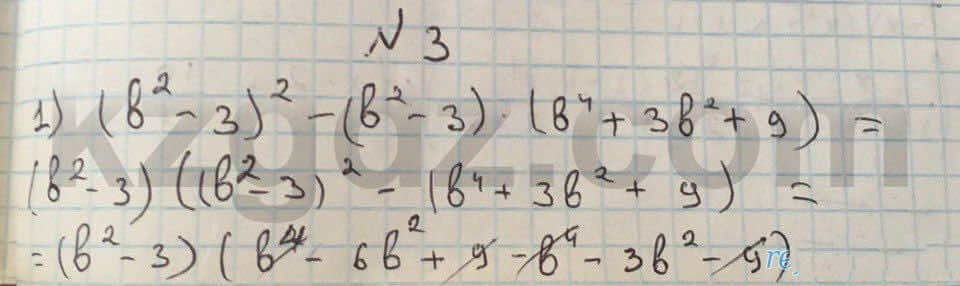 № 3
1) (b² - 3)² - (b² - 3) · (b⁴ + 3b² + 9) =
(b² - 3) ((b² - 3)² - (b⁴ + 3b² + 9) =
= (b² - 3) (b⁴ - 6b² + 9 - b⁴ - 3b² - 9)
kzgdz.com